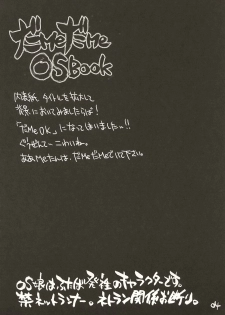 だMeだMe
OSBook
内表紙 タイトルを拡大して
背景においてみましたらば！
「だMe OK」になってしまいました…!!
ぐうぜんって…こわいね。
ああMeたんは、だMeだMeでいて下さい。
OS娘はふたば発祥のキャラクターです。
禁ネットランナー。ネトラン関係お断り。
04